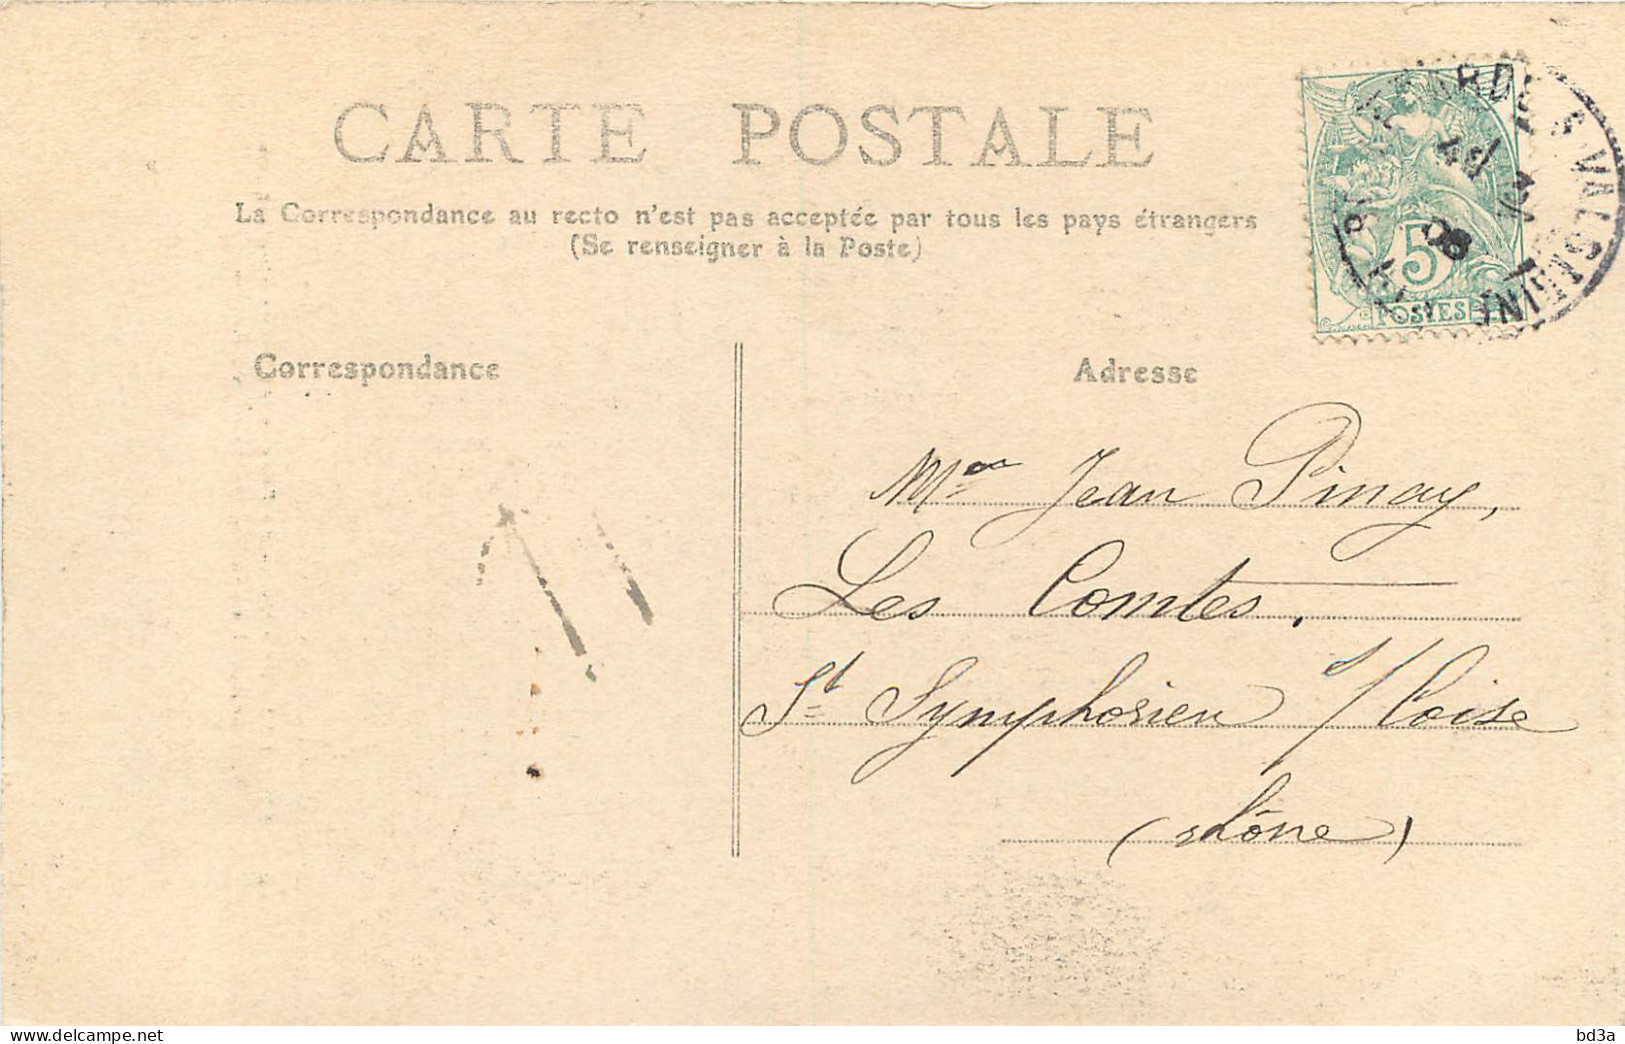 CARTE POSTALE
La Correspondance au recto n'est pas acceptée par tous les pays étrangers
(Se renseigner à la Poste)
5
POSTES
08
Correspondance
Adresse
Mme Jean Pinay,
Les Comtes.
St Symphorien s/ Coise
(Rhône)
bd3a